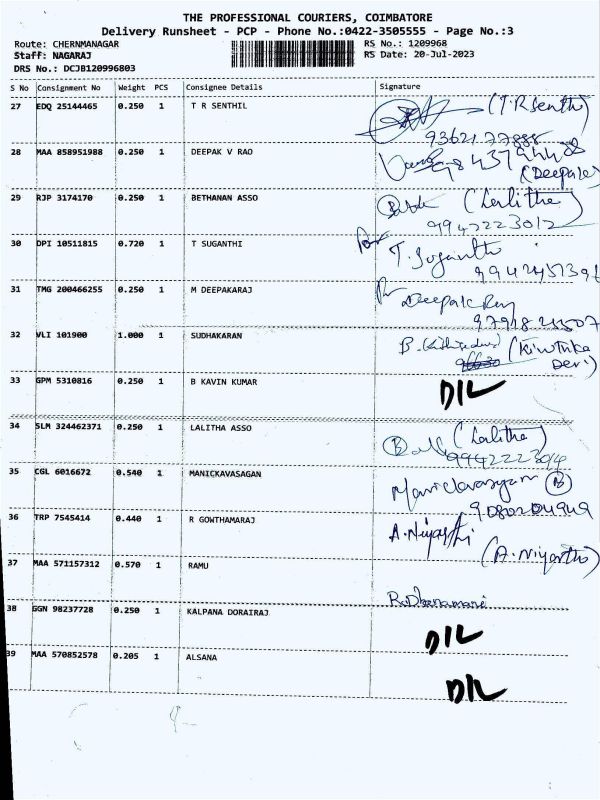 THE PROFESSIONAL COURIERS, COIMBATORE
Delivery Runsheet - PCP - Phone No.:0422-3505555 - Page No.:3
Route: CHERNMANAGAR RS No.: 1209968
Staff: NAGARAJ RS Date: 20-Jul-2023
DRS No.: DCJB120996803
S No Consignment No Weight PCS Consignee Details Signature
27 EDQ 25144465 0.250 1 T R SENTHIL (T.R Senthil)
28 MAA 858951988 0.250 1 DEEPAK V RAO
(Deepak)
29 RJP 3174170 0.250 1 BETHANAN ASSO (Lalitha)
9942223012
30 DPI 10511815 0.720 1 T SUGANTHI T. Suganthi
31 TMG 200466255 0.250 1 M DEEPAKARAJ
32 VLI 101900 1.000 1 SUDHAKARAN
33 GPM 5310816 0.250 1 B KAVIN KUMAR D/L
34 SLM 324462371 0.250 1 LALITHA ASSO (Lalitha)
35 CGL 6016672 0.540 1 MANICKAVASAGAN
36 TRP 7545414 0.440 1 R GOWTHAMARAJ
37 MAA 571157312 0.570 1 RAMU
38 GGN 98237728 0.250 1 KALPANA DORAIRAJ D/L
39 MAA 570852578 0.205 1 ALSANA D/L